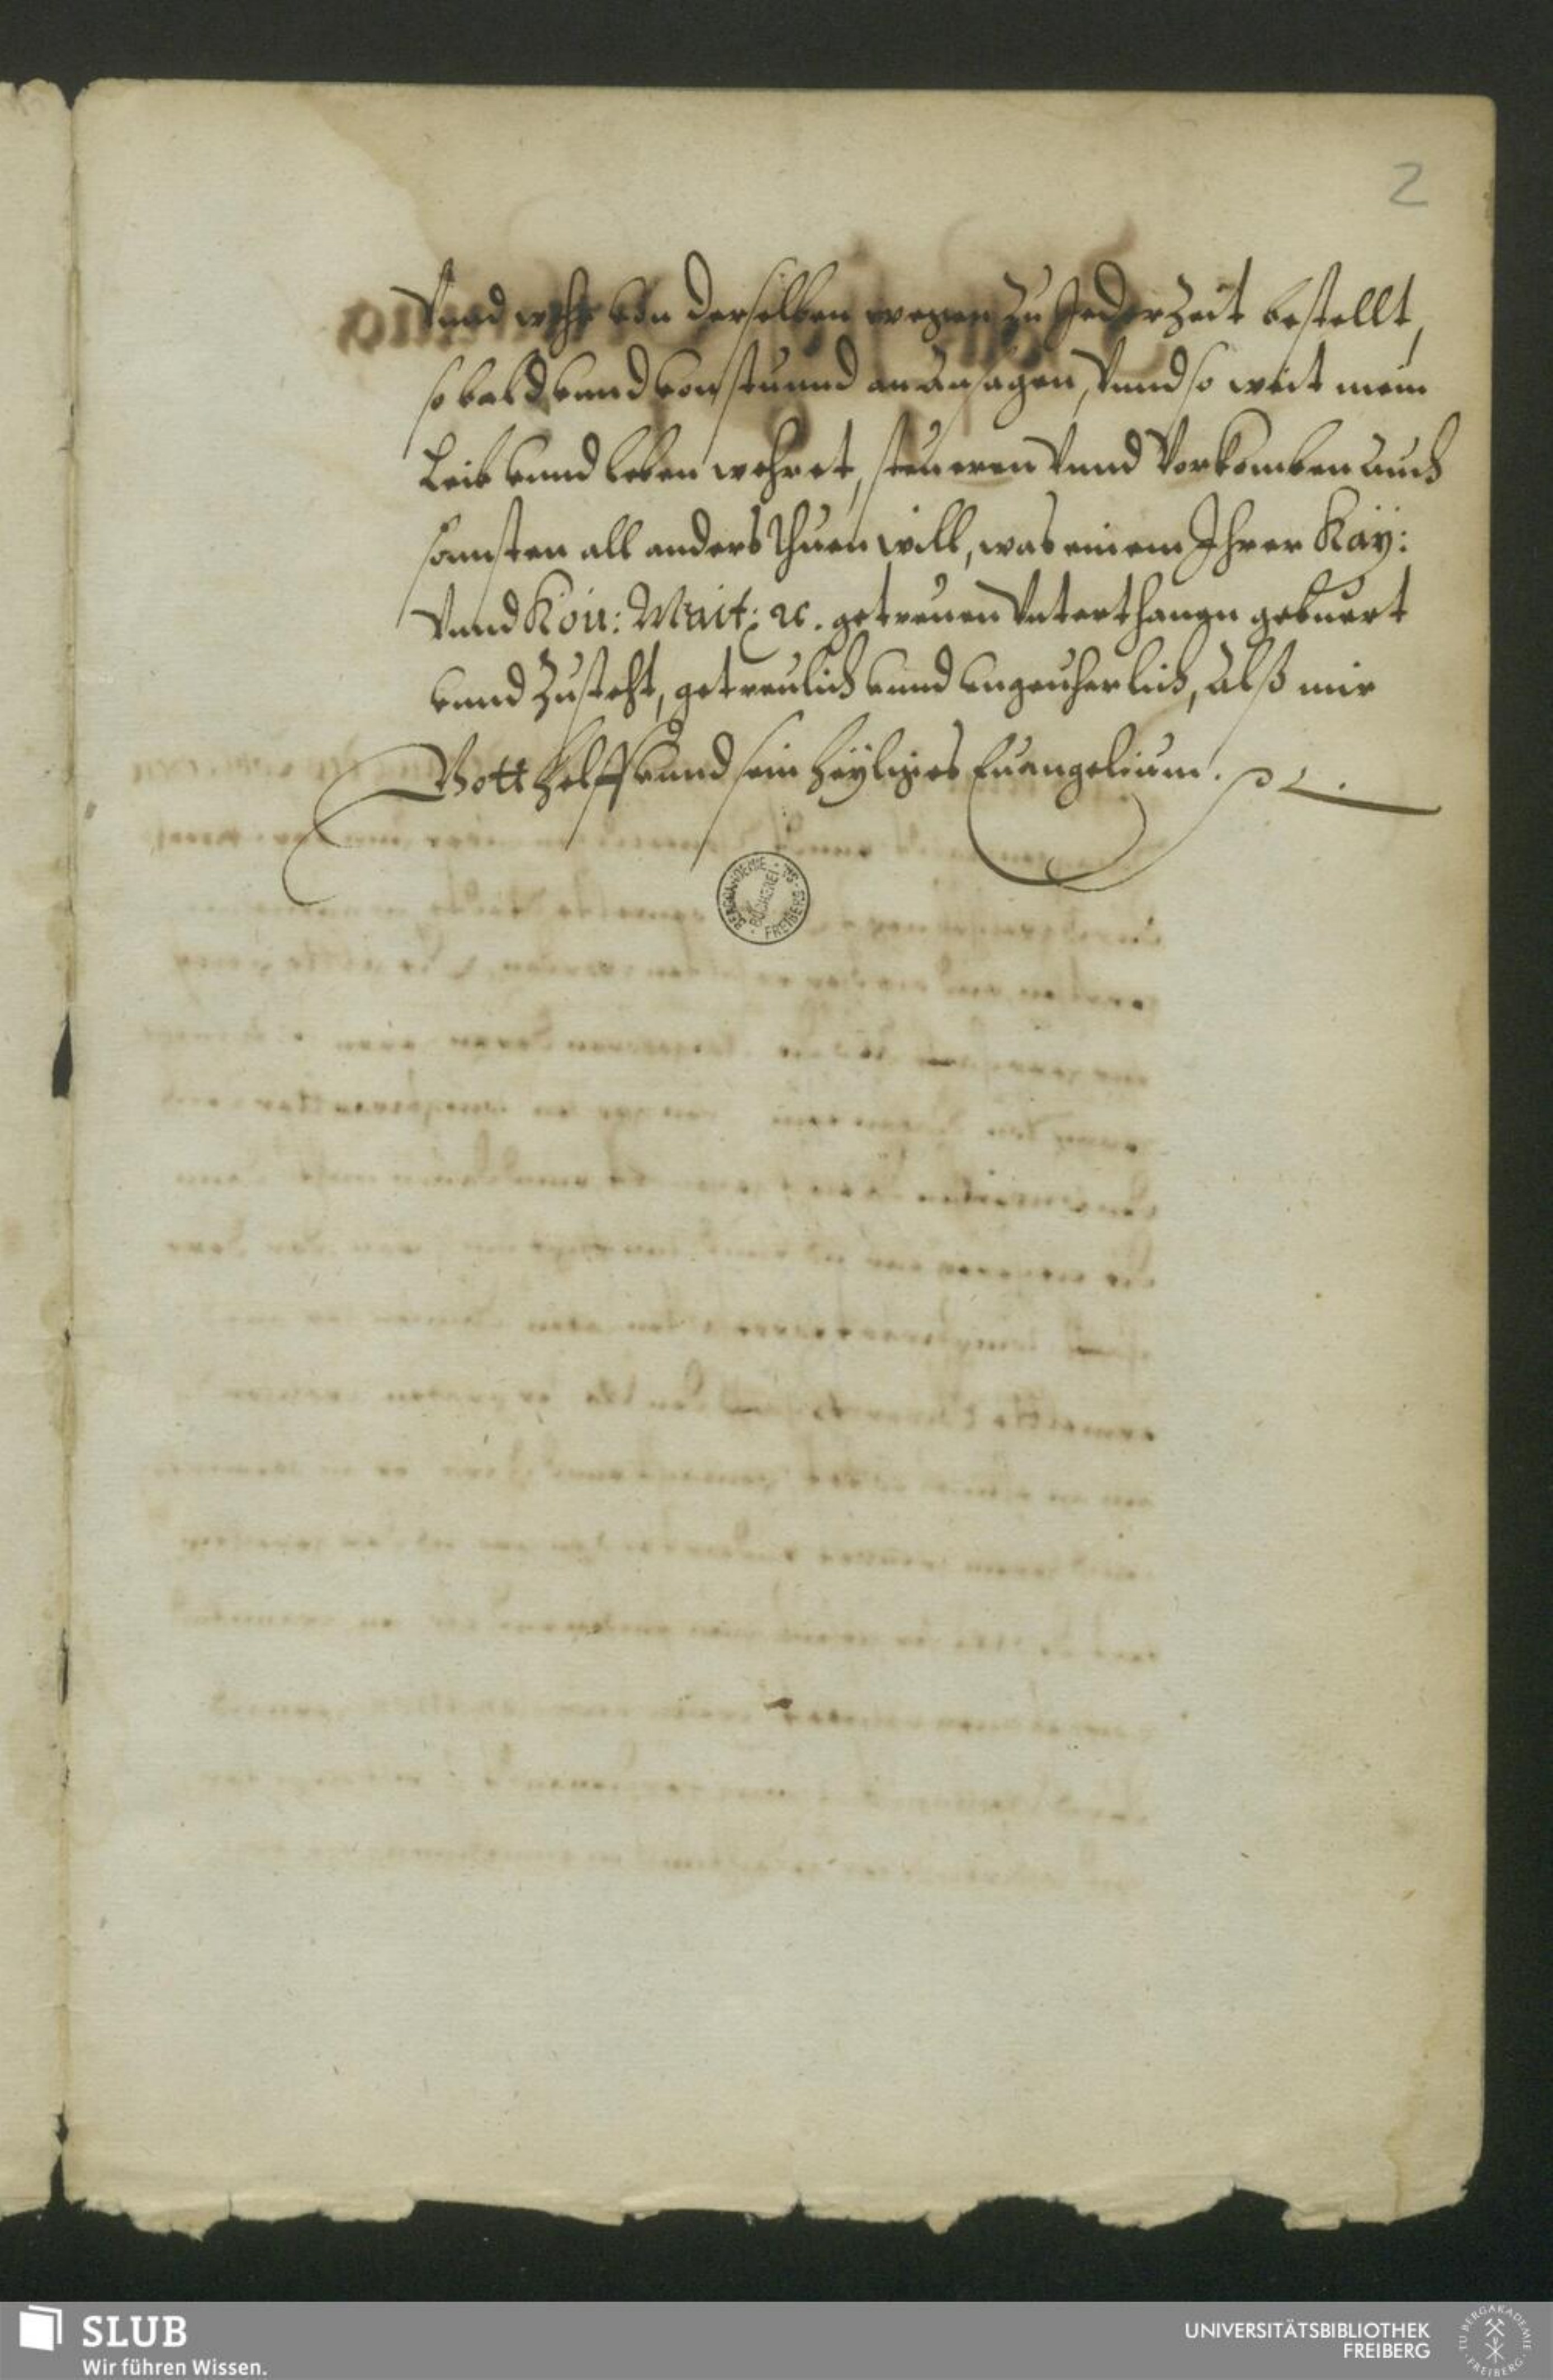 2
Vnnd wehr von derselben wegen zu Jederzeit bestellt,
so bald vnnd von stunnd an ansagen, Vnnd so weit mein
Leib vnnd leben wehret, steueren Vnnd Vorkomben auch
sonnsten all anders thuen will, was einem Ihrer Kay:
Vnnd Kön: Mait: ꝛc. getreuen Vnterthanen gebuert
vnnd zusteht, getreulich vnnd vngeuherlich, Alß mir
Gott helff vnnd sein heyliges Euangelium. ꝛc.
BERGAKADEMIE
BÜCHEREI
FREIBERG
SLUB
Wir führen Wissen.
UNIVERSITÄTSBIBLIOTHEK
FREIBERG
TU BERGAKADEMIE
FREIBERG